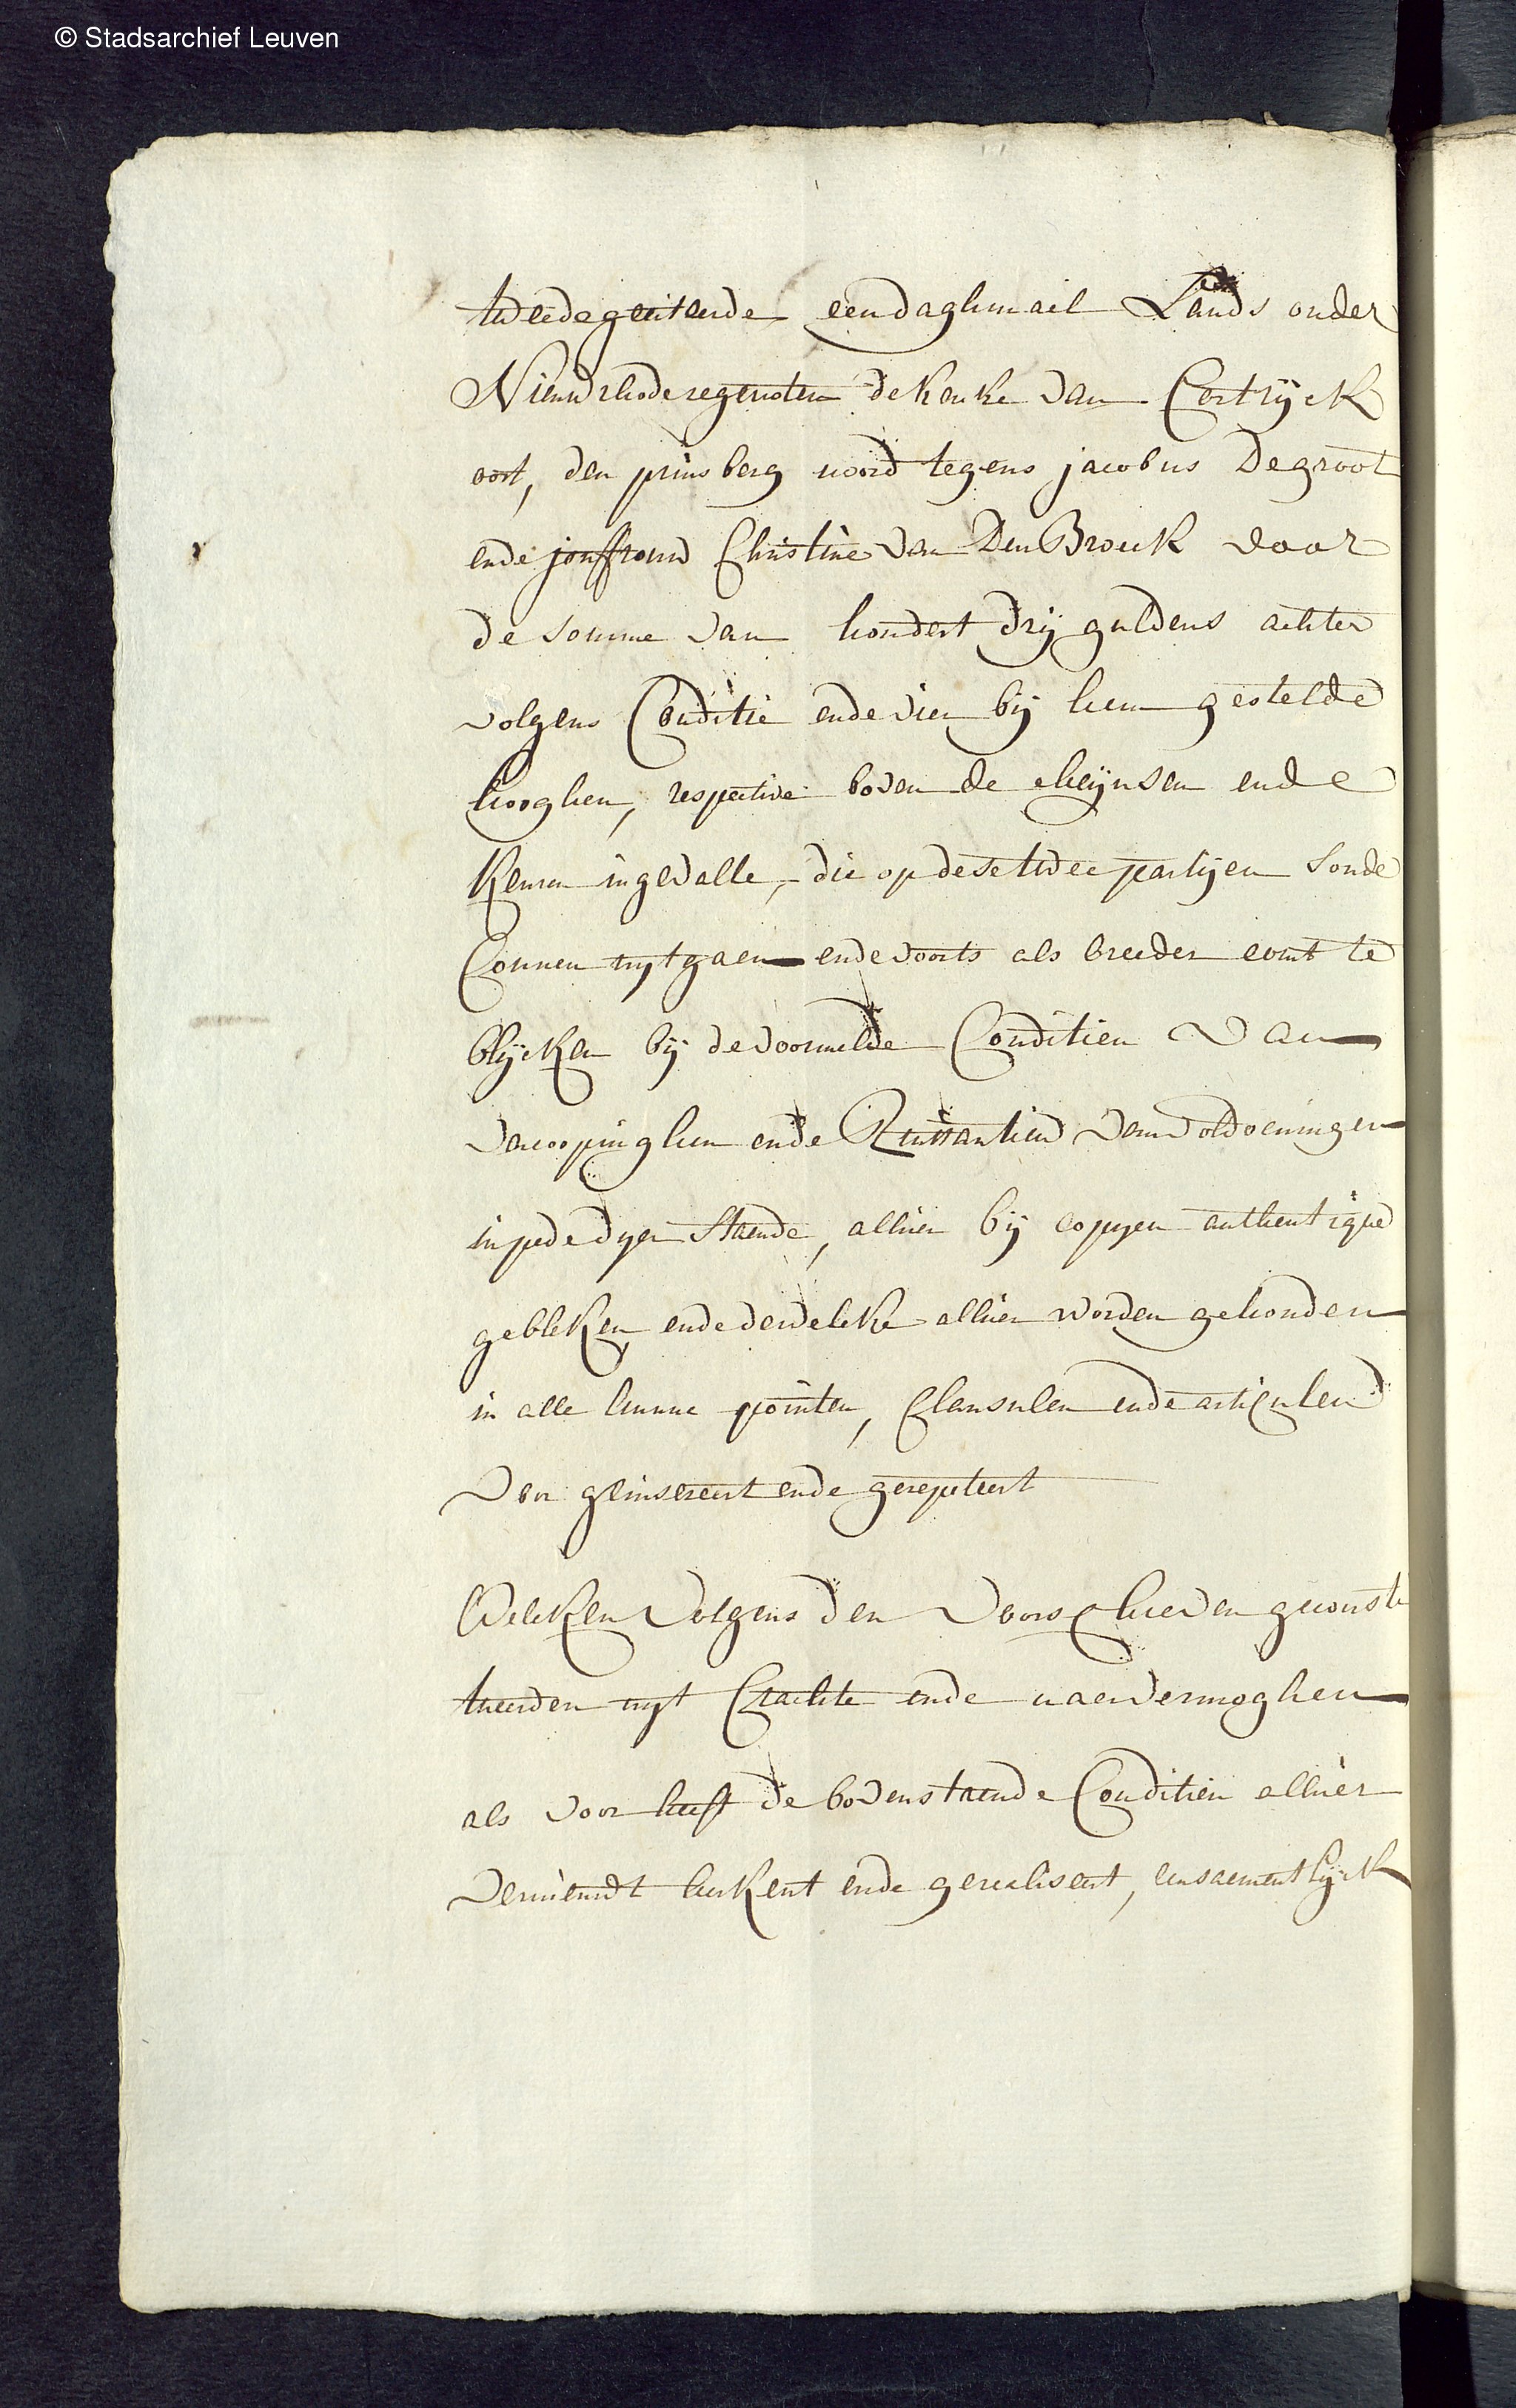 © Stadsarchief Leuven
tweede geeitende een daghmael Lands onder
Nieuwrhode regenoten de kerke van Cortryck
oost, den prinsberg noord tegens jacobus Degroot
ende jouffrouw Christine van Den Broeck voor
de somme van hondert dry guldens achter
volgens Conditie ende vier by hem gestelde
hooghen, respective boven de cheynsen ende
Keuren ingevalle, die op dese twee partyen soude
Connen uytgaen ende voorts als breeder comt te
blycken by de voormelde Conditien van
vercoopinghen ende Quittantien van voldoeningen
in pede dyer staende, alhier by copyen authentique
gebleken, ende dewelcke alhier worden gehouden
in alle hunne pointen, Clausulen ende articulen
voor geinsereert ende gereputeert
Welcken volgens den voorschreven geconsti
tueerden uyt Crachte ende naer vermoghen
als voor heeft de bovenstaende Conditien alhier
vernieuwt herkent ende gerealiseert, ensaementlyck